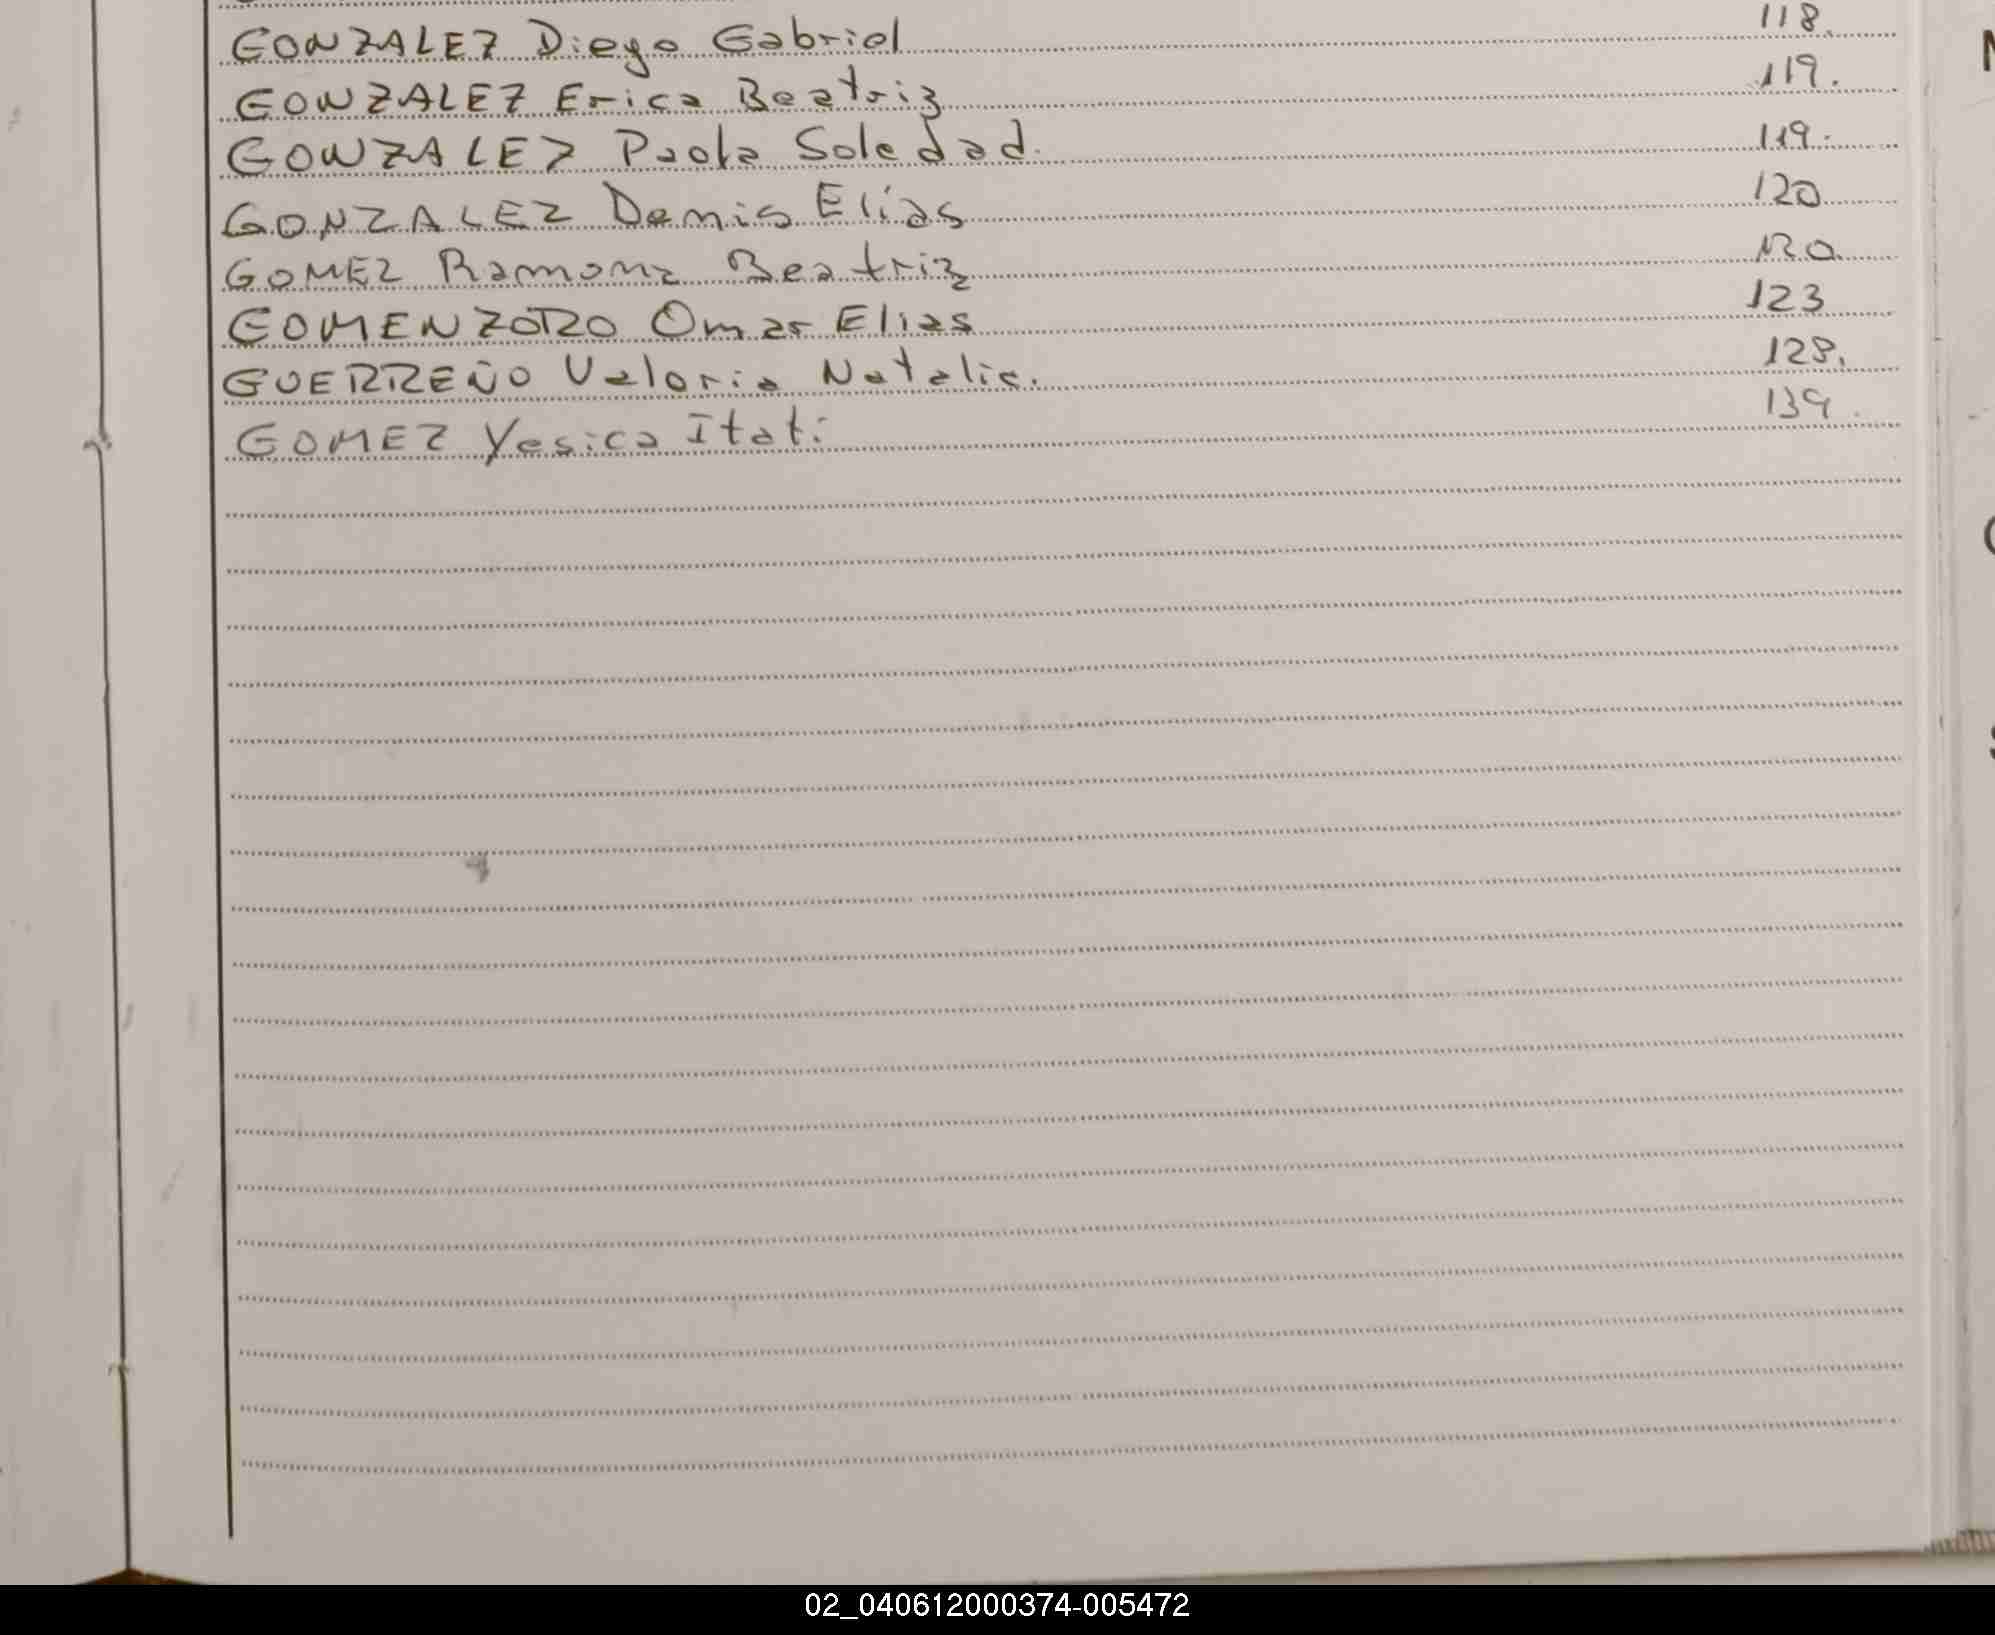 GONZALEZ Diego Gabriel 118.
GONZALEZ Erica Beatriz 119.
GONZALEZ Paola Soledad. 119.
GONZALEZ Denis Elías 120
GOMEZ Ramona Beatriz 120
GOMENZORO Omar Elias 123
GUERREÑO Valeria Natalia. 128.
GOMEZ Yesica Itati 139.
02_040612000374-005472